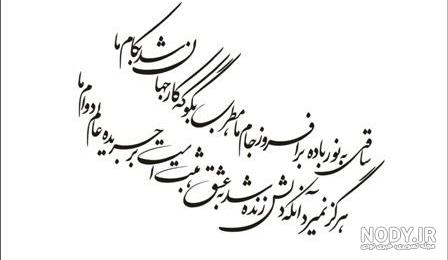 ساقی به نور باده برافروز جام ما مطرب بگو که کار جهان شد بکام ما
هرگز نمیرد آنکه دلش زنده شد به عشق ثبت است بر جریده عالم دوام ما
NODY.IR
مجله تصویری، خبری نودی